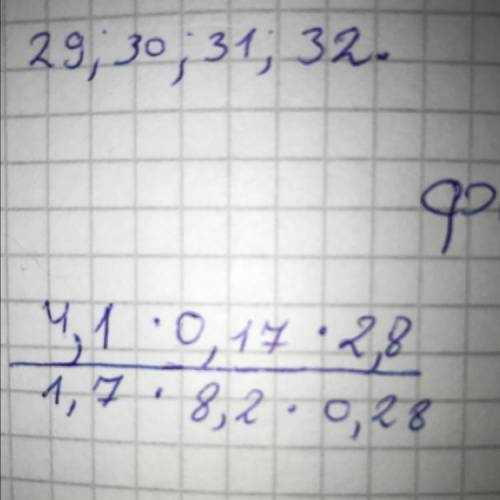 29; 30; 31; 32.
ф
4,1 · 0,17 · 2,8
1,7 · 8,2 · 0,28